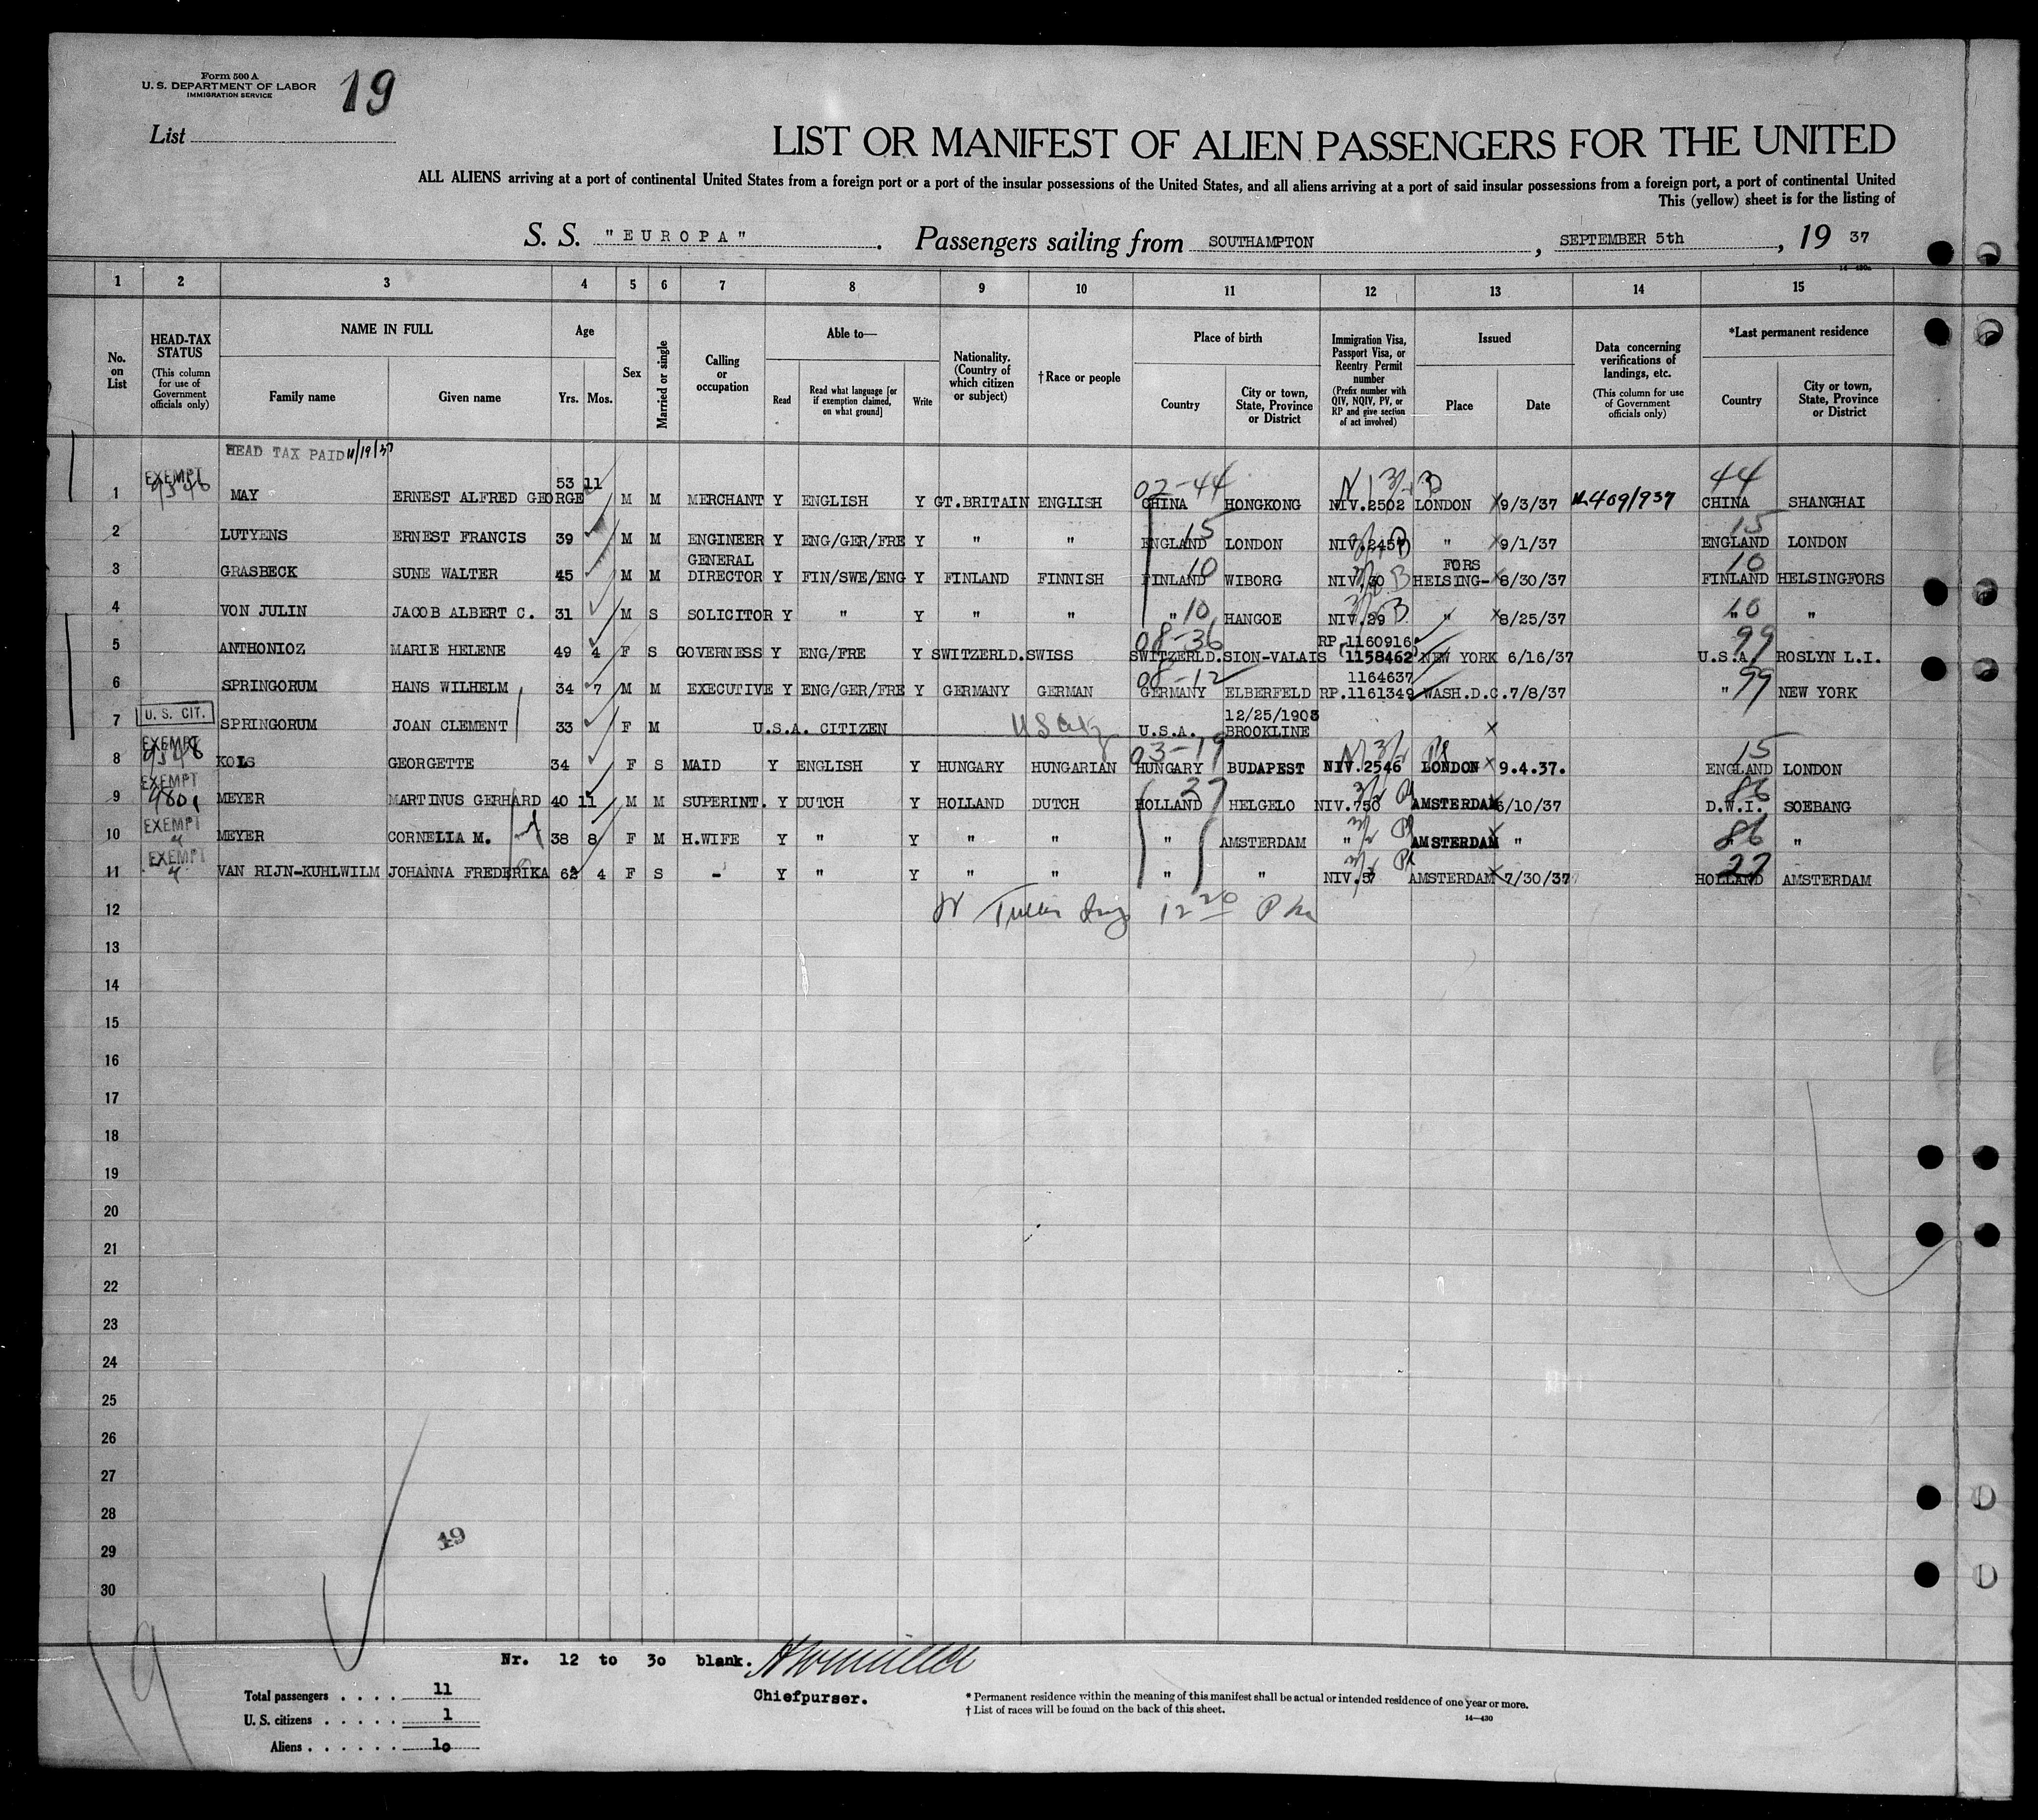 Form 500 A
U. S. DEPARTMENT OF LABOR
IMMIGRATION SERVICE
19
List
LIST OR MANIFEST OF ALIEN PASSENGERS FOR THE UNITED
ALL ALIENS arriving at a port of continental United States from a foreign port or a port of the insular possessions of the United States, and all aliens arriving at a port of said insular possessions from a foreign port, a port of continental United
This (yellow) sheet is for the listing of
S. S. "EUROPA" . Passengers sailing from SOUTHAMPTON , SEPTEMBER 5th , 19 37
1 2 3 4 5 6 7 8 9 10 11 12 13 14 15
No. on List
HEAD-TAX STATUS (This column for use of Government officials only)
NAME IN FULL
Family name
Given name
Age
Yrs. Mos.
Sex
Married or single
Calling or occupation
Able to—
Read
Read what language [or if exemption claimed, on what ground]
Write
Nationality. (Country of which citizen or subject)
†Race or people
Place of birth
Country
City or town, State, Province or District
Immigration Visa, Passport Visa, or Reentry Permit number (Prefix number with QIV, NQIV, PV, or RP and give section of act involved)
Issued
Place
Date
Data concerning verifications of landings, etc. (This column for use of Government officials only)
*Last permanent residence
Country
City or town, State, Province or District
HEAD TAX PAID 11/19/37
EXEMPT 02-44 44
1 MAY ERNEST ALFRED GEORGE 53 11 M M MERCHANT Y ENGLISH Y GT.BRITAIN ENGLISH CHINA HONGKONG NIV.2502 LONDON 9/3/37 CHINA SHANGHAI
15 15
2 LUTYENS ERNEST FRANCIS 39 M M ENGINEER Y ENG/GER/FRE Y " " ENGLAND LONDON NIV.2457 " 9/1/37 ENGLAND LONDON
10 10
3 GRASBECK SUNE WALTER 45 M M GENERAL DIRECTOR Y FIN/SWE/ENG Y FINLAND FINNISH FINLAND WIBORG NIV.30 HELSING-FORS 8/30/37 FINLAND HELSINGFORS
4 VON JULIN JACOB ALBERT C. 31 M S SOLICITOR Y " Y " " " 10 HANGOE NIV.29 " 8/25/37 " 10 "
08-36 99
5 ANTHONIOZ MARIE HELENE 49 4 F S GOVERNESS Y ENG/FRE Y SWITZERLD. SWISS SWITZERLD. SION-VALAIS RP.1160916 1158462 NEW YORK 6/16/37 U.S.A. ROSLYN L.I.
08-12 99
6 SPRINGORUM HANS WILHELM 34 7 M M EXECUTIVE Y ENG/GER/FRE Y GERMANY GERMAN GERMANY ELBERFELD 1164637 RP.1161349 WASH.D.C. 7/8/37 " NEW YORK
U. S. CIT.
7 SPRINGORUM JOAN CLEMENT 33 F M U.S.A. CITIZEN U.S.A. 12/25/1903 BROOKLINE
EXEMPT 03-19 15
8 KOLS GEORGETTE 34 F S MAID Y ENGLISH Y HUNGARY HUNGARIAN HUNGARY BUDAPEST NIV.2546 LONDON 9.4.37. ENGLAND LONDON
EXEMPT 86
9 MEYER MARTINUS GERHARD 40 11 M M SUPERINT. Y DUTCH Y HOLLAND DUTCH HOLLAND HELGELO NIV.750 AMSTERDAM 6/10/37 D.W.I. SOEBANG
EXEMPT 86
10 MEYER CORNELIA M. 38 8 F M H.WIFE Y " Y " " " AMSTERDAM " AMSTERDAM " "
EXEMPT 27
11 VAN RIJN-KUHLWILM JOHANNA FREDERIKA 62 4 F S - Y " Y " " " " NIV.57 AMSTERDAM 7/30/37 HOLLAND AMSTERDAM
12
13
14
15
16
17
18
19
20
21
22
23
24
25
26
27
28
29
30
19
Nr. 12 to 30 blank.
Chiefpurser.
Total passengers . . . . 11
U. S. citizens . . . . . 1
Aliens . . . . . . 10
* Permanent residence within the meaning of this manifest shall be actual or intended residence of one year or more.
† List of races will be found on the back of this sheet.
14—430
19